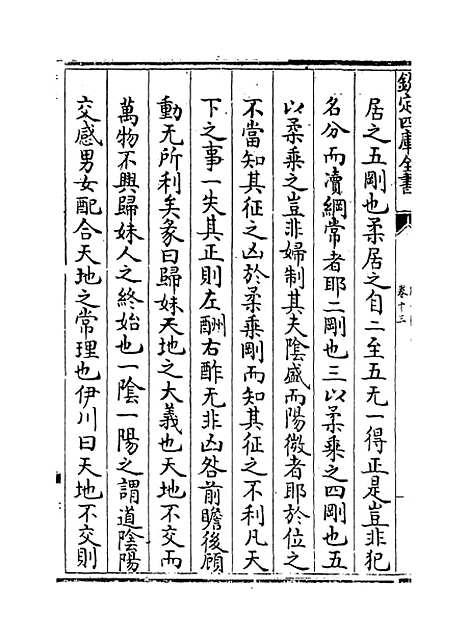 欽定四庫全書
卷十三
居之五剛也柔居之自二至五无一得正是豈非犯
名分而瀆綱常者耶二剛也三以柔乘之四剛也五
以柔乘之豈非婦制其夫陰盛而陽微者耶於位之
不當知其征之凶於柔乘剛而知其征之不利凡天
下之事一失其正則左酬右酢无非凶咎前瞻後顧
動无所利矣彖曰歸妹天地之大義也天地不交而
萬物不興歸妹人之終始也一陰一陽之謂道陰陽
交感男女配合天地之常理也伊川曰天地不交則